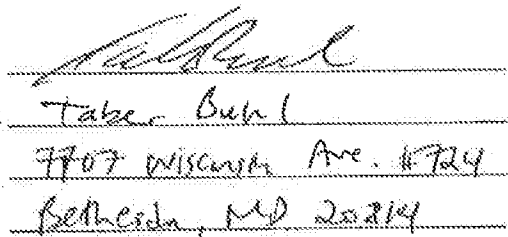 Taber Buhl
7707 Wisconsin Ave. #724
Bethesda, MD 20814